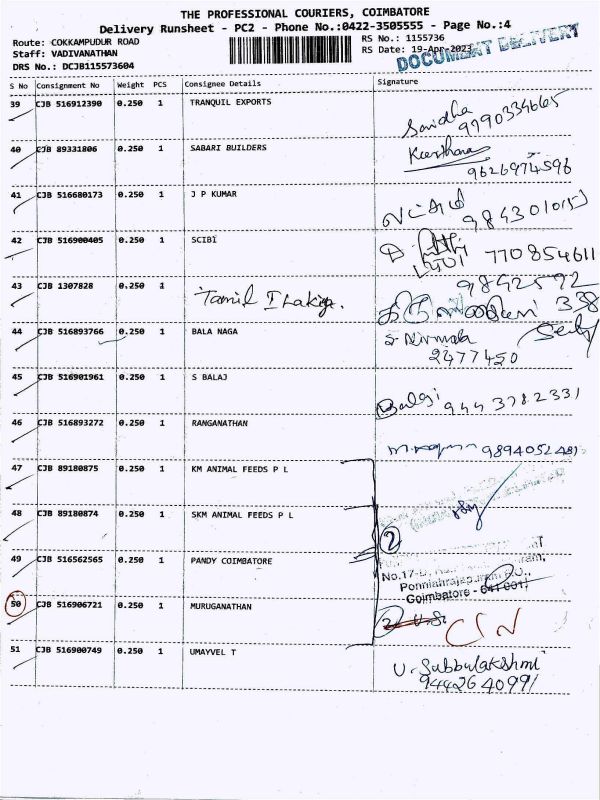 THE PROFESSIONAL COURIERS, COIMBATORE
Delivery Runsheet - PC2 - Phone No.:0422-3505555 - Page No.:4
Route: COKKAMPUDUR ROAD
RS No.: 1155736
Staff: VADIVANATHAN
RS Date: 19-Apr-2023
DOCUMENT DELIVERY
DRS No.: DCJB115573604
S No Consignment No Weight PCS Consignee Details Signature
39 CJB 516912390 0.250 1 TRANQUIL EXPORTS
9790334665
40 CJB 89331806 0.250 1 SABARI BUILDERS Keerthana
9626974596
41 CJB 516680173 0.250 1 J P KUMAR
42 CJB 516900405 0.250 1 SCIBI
770854611
43 CJB 1307828 0.250 1 Tamil
9842592
338
44 CJB 516893766 0.250 1 BALA NAGA S Nirmala
2477450
45 CJB 516901961 0.250 1 S BALAJ Balaji 9443782331
46 CJB 516893272 0.250 1 RANGANATHAN
989405248
47 CJB 89180875 0.250 1 KM ANIMAL FEEDS P L
48 CJB 89180874 0.250 1 SKM ANIMAL FEEDS P L
2
49 CJB 516562565 0.250 1 PANDY COIMBATORE
No.17-
Coimbatore - 641 001
50 CJB 516906721 0.250 1 MURUGANATHAN
51 CJB 516900749 0.250 1 UMAYVEL T U. Subbulakshmi
9442640991